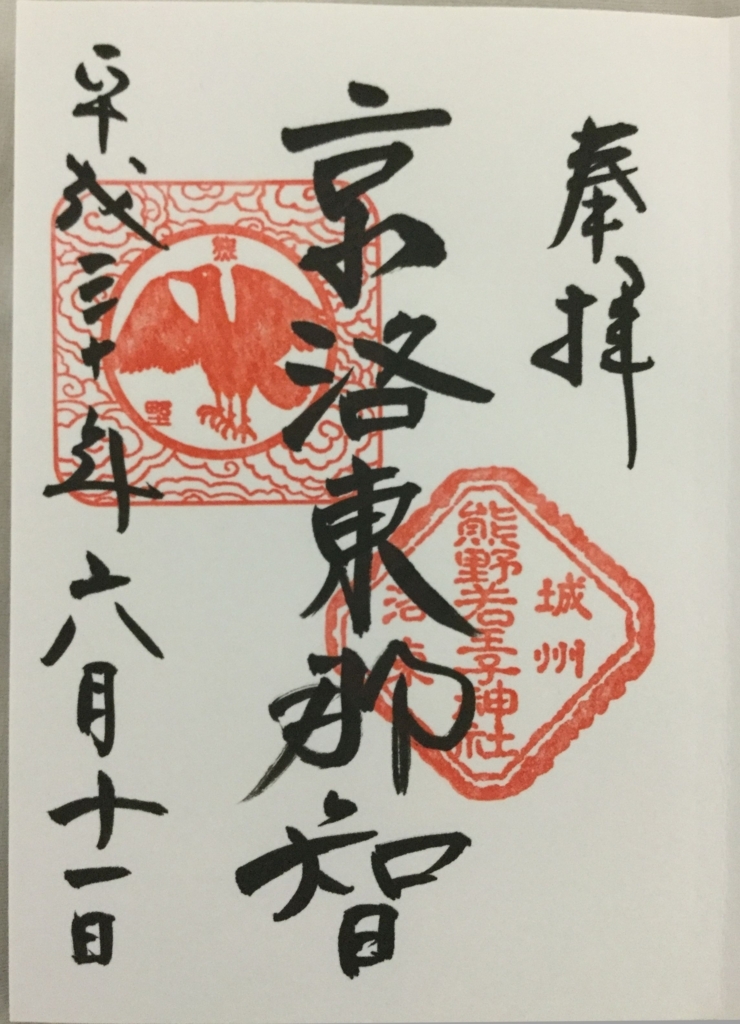 奉拝
城州
熊野若王子神社
洛東
京洛東那智
熊
野
平成三十年六月十一日